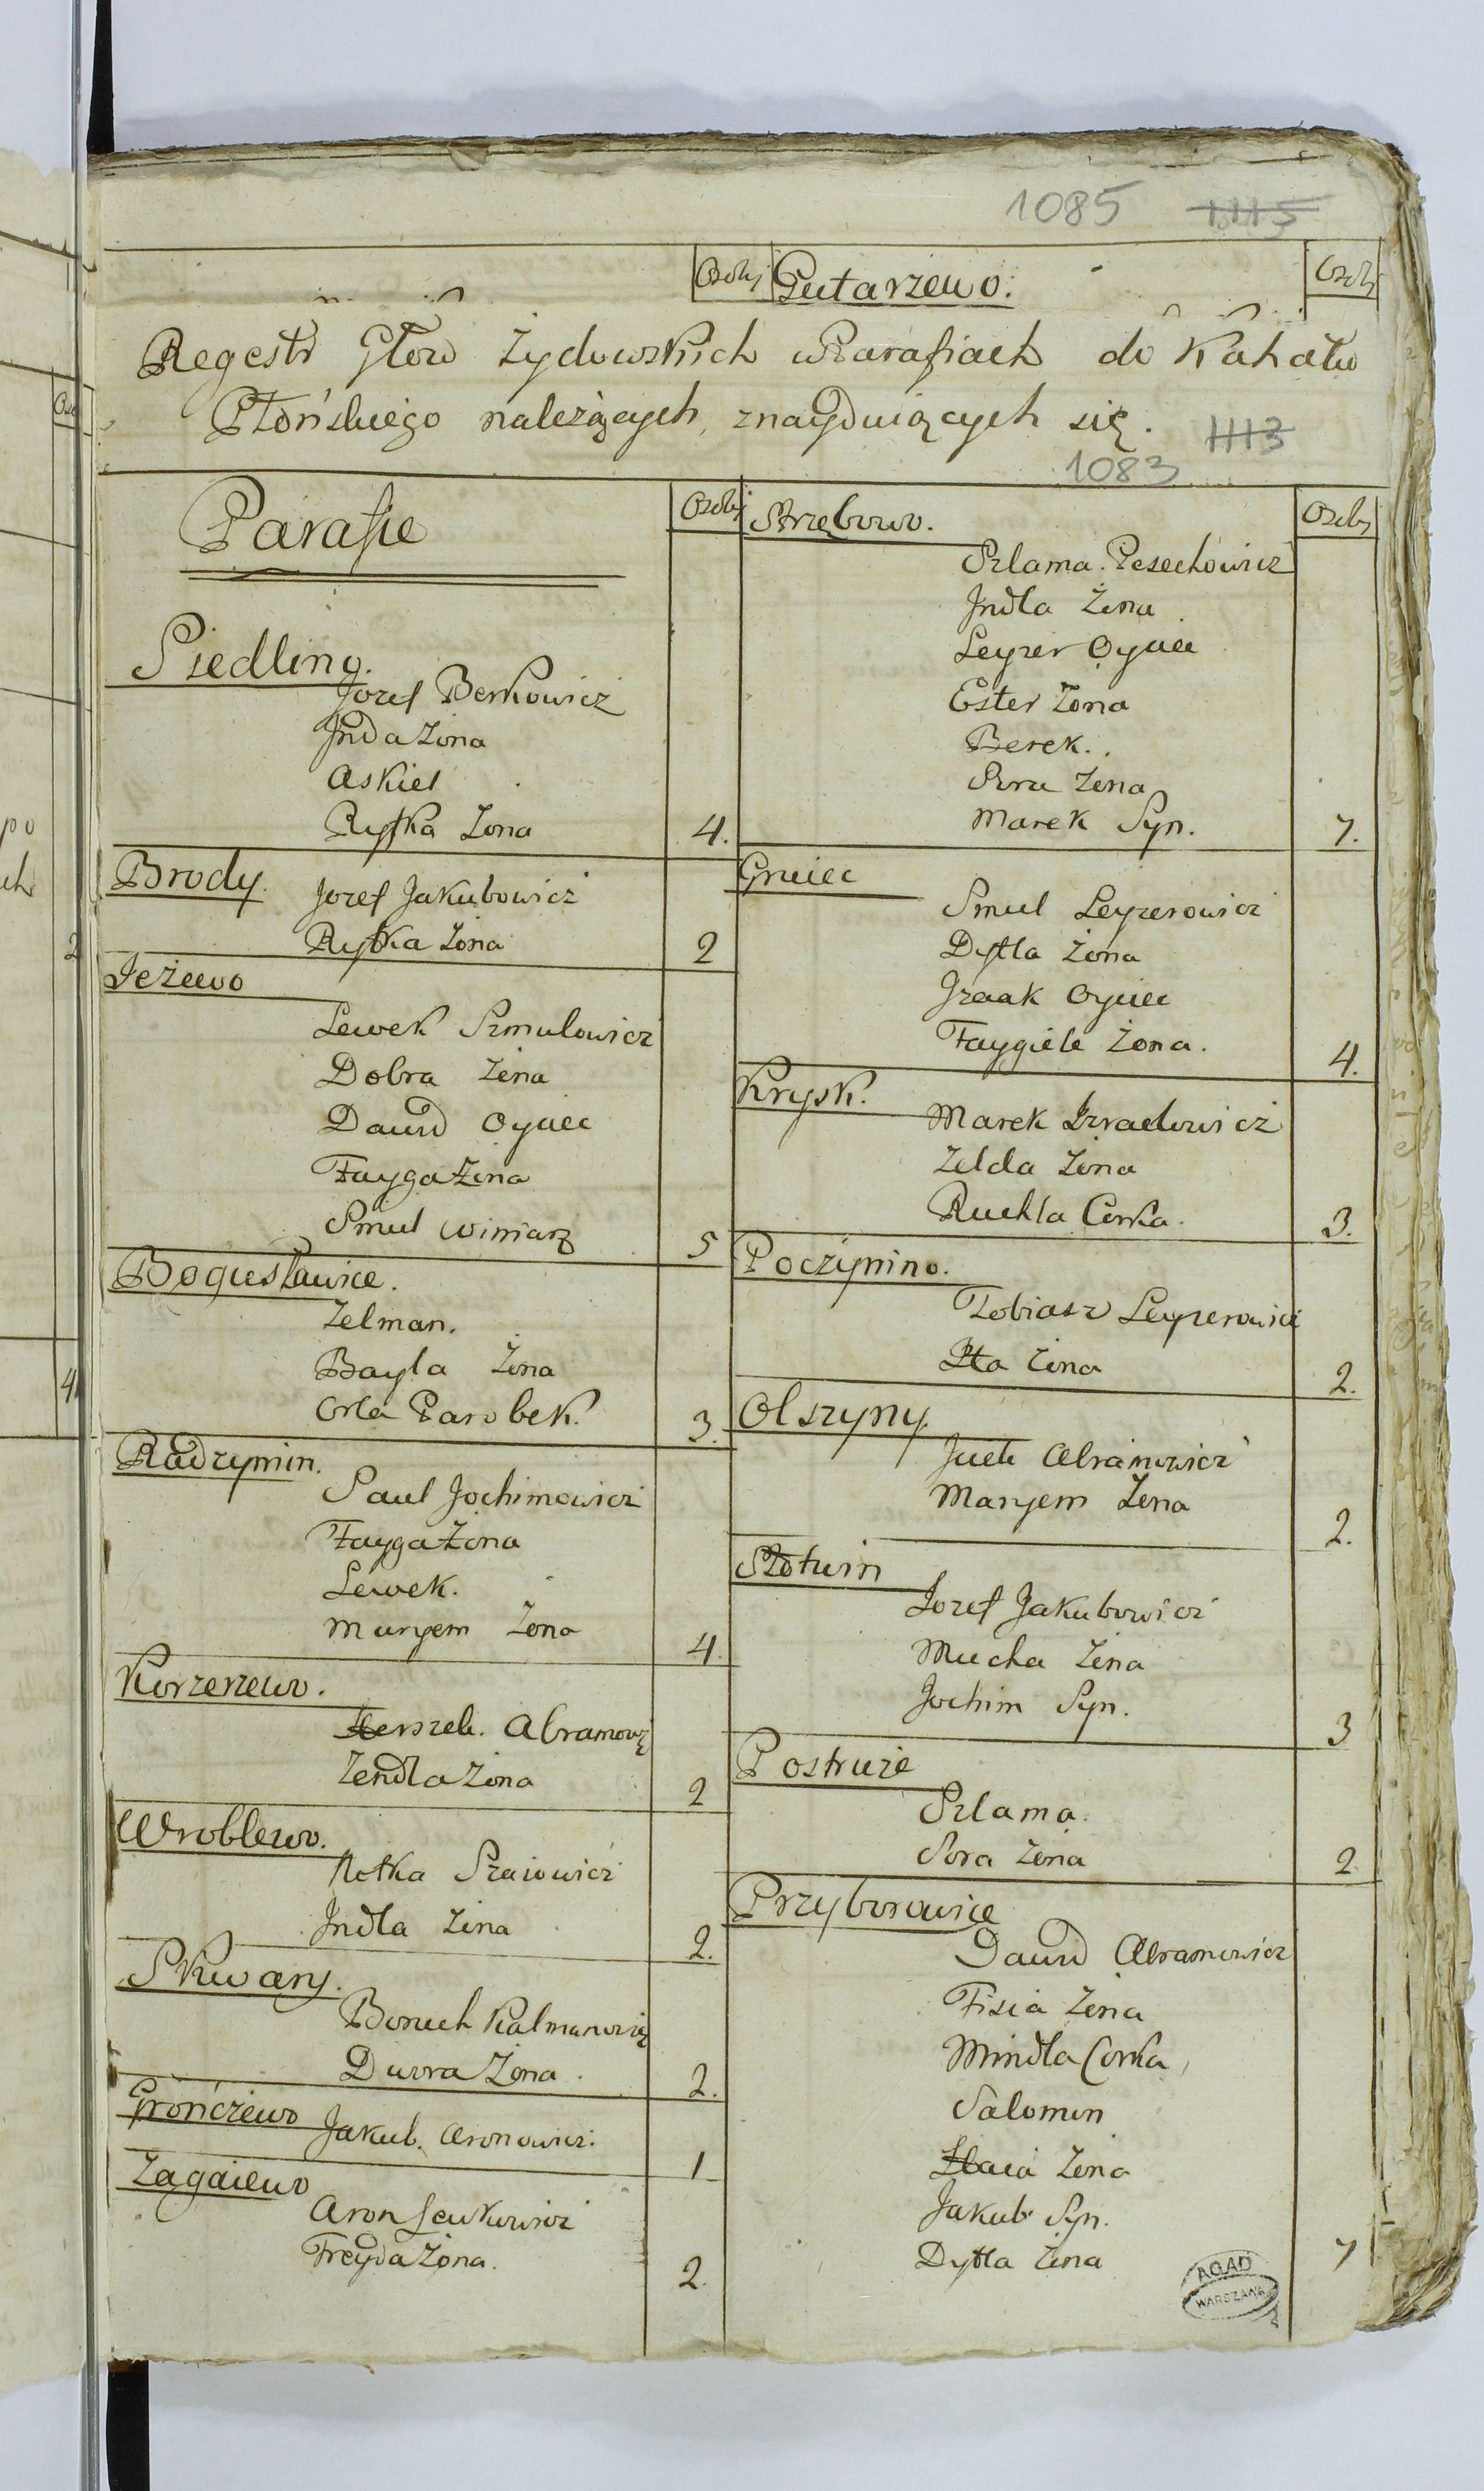 1085 1115
Osoby Gutarzewo. Osoby
Regestr Głow Żydowskich w Parafiach do Kahału
Płońskiego należących, znayduiących się.
1113
1083
Parafie
Osoby
Siedling.
Jozef Berkowicz
Jnda Żona
Askiel
Ryfka Żona 4.
Brody.
Jozef Jakubowicz
Ryfka Żona 2
Jeżewo
Lewek Szmulowicz
Dobra Żona
Dawid Oyciec
Fayga Żona
Smul Winiarz 5
Bogusławice.
Zelman.
Bayla Żona
Orla Parobek. 3.
Radzymin.
Saul Jochimowicz
Fayga Żona
Lewek.
Maryem Żona 4.
Korzerzewo.
Herszek. Abramowicz
Zendla Żona 2
Wroblewo.
Notka Szaiowicz
Jndla Żona 2.
Skwary.
Boruch Kalmanowicz
Dwora Żona 2.
Grończewo
Jakub. Aronowicz. 1
Zagaiewo
Aron Lewkowicz
Freyda Żona. 2.
Strzębowo.
Osoby
Szlama. Pesechowicz
Jndla Żona
Leyzer Oyciec
Ester Żona
Berek.
Sura Żona
Marek Syn. 7.
Gruiec
Smul Leyzerowicz
Dytla Żona
Jzaak Oyciec
Faygiele Żona. 4.
Krysk.
Marek Izraelowicz
Zelda Żona
Ruchla Corka. 3.
Poczynino.
Tobiasz Leyzerowicz
Itta Żona 2.
Olszyny.
Abramowicz
Maryem Żona 2.
Słotwin
Jozef Jakubowicz
Mucha Żona
Jochim Syn. 3
Postruże
Szlama.
Sora Żona 2
Przyborowice
Dawid Abramowicz
Fisia Żona
Mindla Corka,
Salomon
Żona
Jakub Syn.
Dytla Żona 7
AGAD
WARSZAWA